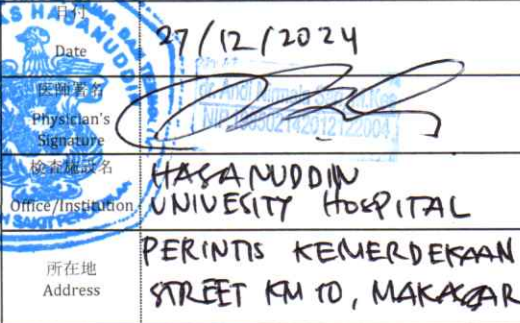 日付
Date
27/12/2024
医師署名
Physician's
Signature
検査施設名
Office/Institution
HASANUDDIN
UNIVESITY HOSPITAL
所在地
Address
PERINTIS KEMERDEKAAN
STREET KM 10, MAKASAR